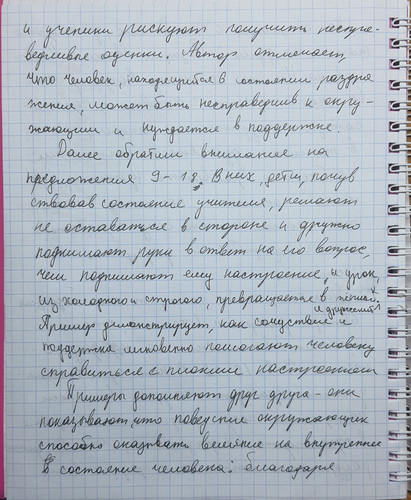 и ученики рискуют получить неспра-
ведливые оценки. Автор отмечает,
что человек, находящийся в состоянии раздра
жения, может быть несправедлив к окру-
жающим и нуждается в поддержке.
Далее обратим внимание на
предложения 9-18. В них, дети, почув
ствовав состояние учителя, решают
не оставаться в стороне и дружно
поднимают руки в ответ на его вопрос,
чем поднимают ему настроение, и урок,
из холодного и строгого, превращается в теплый
и дружеский
Пример демонстрирует, как сочувствие и
поддержка мгновенно помогают человеку
справиться с плохим настроением
Примеры дополняют друг друга - они
показывают, что поведение окружающих
способно оказывать влияние на внутреннее
состояние человека: благодаря